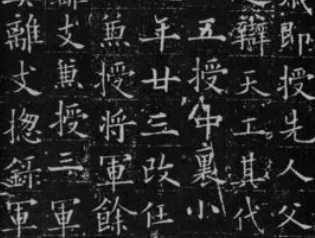 即授先人父
辯天工其代
五授中裏小
年廿三改任
兼授將軍餘
支兼授三軍
離支揔錄軍